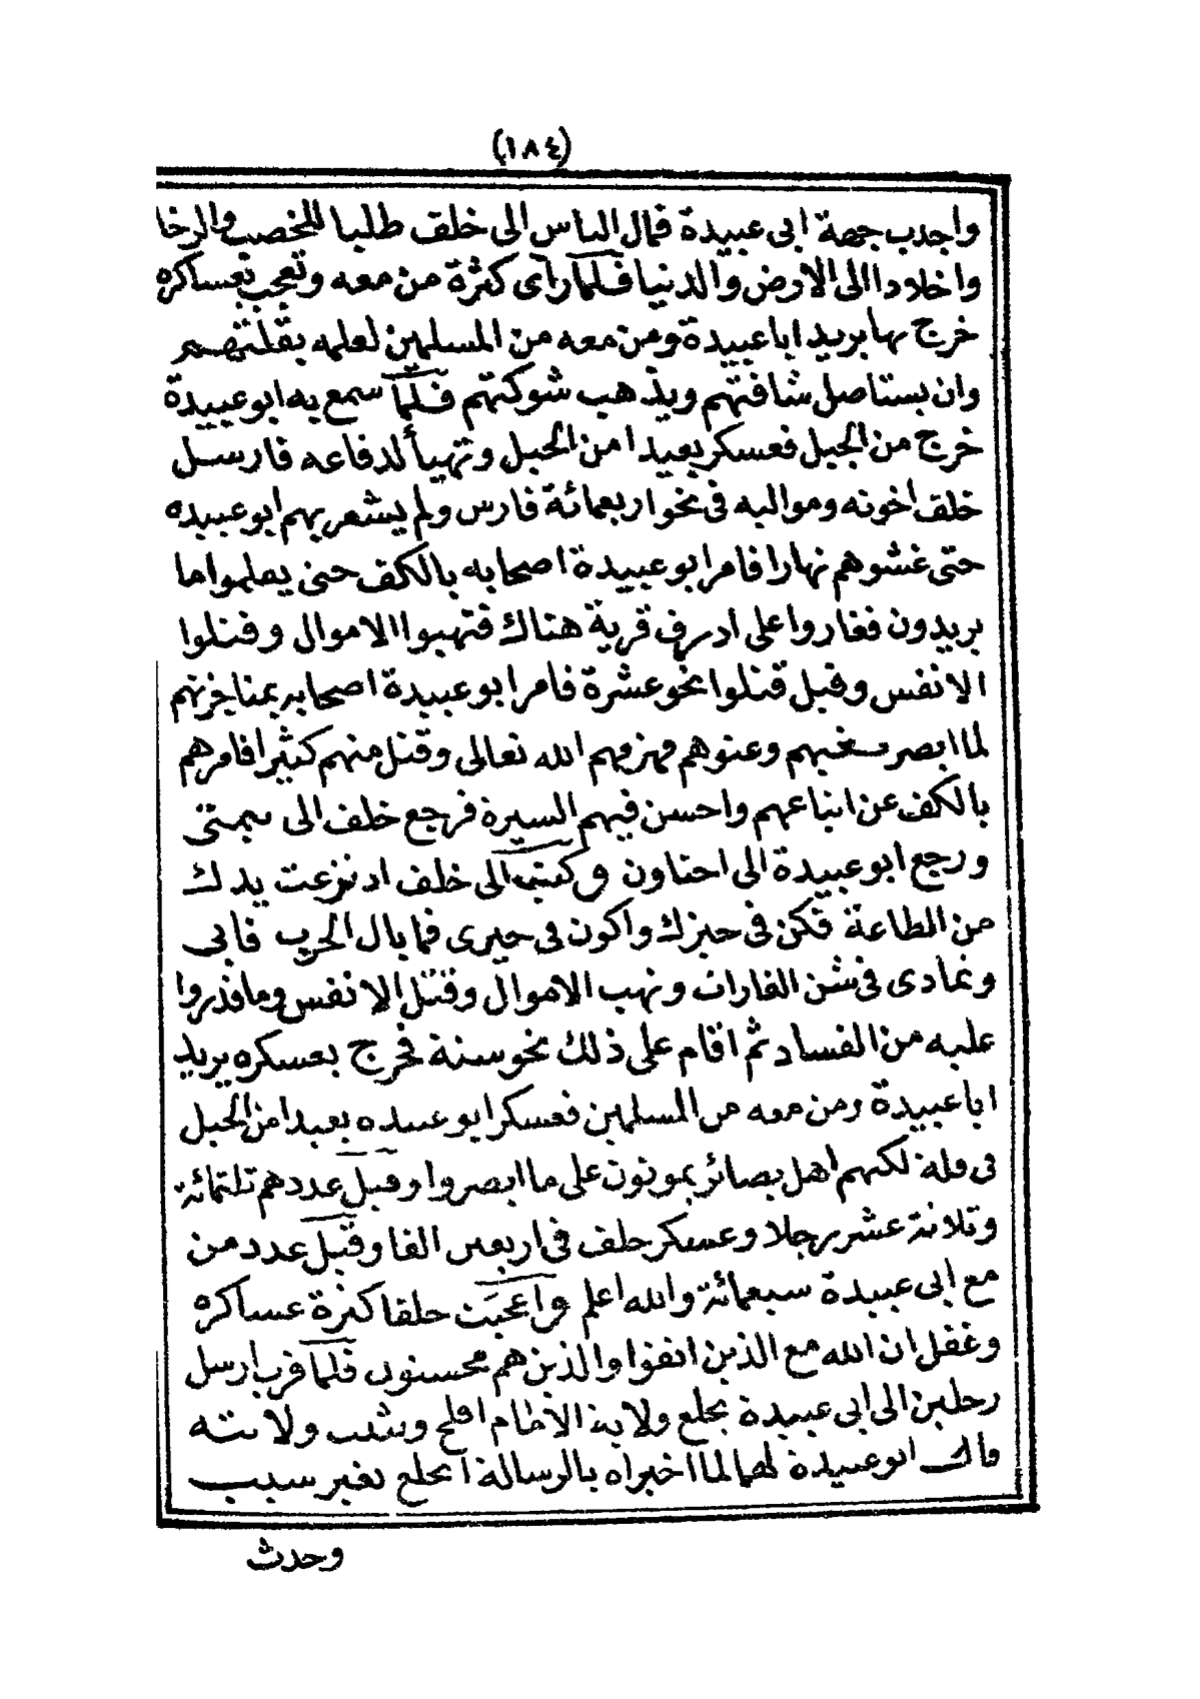 (١٨٤)
واجدب جهة ابى عبيدة فمال الناس الى خلف طلبا للخصب والرخا
واخلادا الى الارض والدنيا فلما رآى كثرة من معه وتعجب بعساكره
خرج بها يريد ابا عبيدة ومن معه من المسلمين لعلمه بقلتهم
وان يستاصل شافتهم ويذهب شوكتهم فلما سمع به ابو عبيدة
خرج من الجبل فعسكر بعيدا من الجبل وتهيأ لدفاعه فارسل
خلف اخوته ومواليه فى نحو اربعمائة فارس ولم يشعر بهم ابو عبيده
حتى غشوهم نهارا فامر ابو عبيدة اصحابه بالكف حتى يعلموا ما
يريدون فغاروا على ادرف قرية هناك فنهبوا الاموال وقتلوا
الانفس وقيل قتلوا نحو عشرة فامر ابو عبيدة اصحابه بمناجزتهم
لما ابصر بغيهم وعتوهم فهزمهم الله تعالى وقتل منهم كثيرا فامرهم
بالكف عن اتباعهم واحسن فيهم السيرة فرجع خلف الى تيمتى
ورجع ابو عبيدة الى اجناون وكتب الى خلف اد نزعت يدك
من الطاعة فكن فى حيزك واكون فى حيزى فما بال الحرب فابى
وتمادى فى شن الغارات ونهب الاموال وقتل الانفس وما قدروا
عليه من الفساد ثم اقام على ذلك نحو سنة فخرج بعسكره يريد
ابا عبيدة ومن معه من المسلمين فعسكر ابو عبيده بعيدا من الجبل
فى قلة لكنهم اهل بصائر يموتون على ما ابصروا وقيل عددهم تلتمائة
وتلاتة عشر رجلا وعسكر خلف فى اربعين الفا وقيل عدد من
مع ابى عبيدة سبعمائة والله اعلم واعجبت خلفا كثرة عساكره
وغفل ان الله مع الذين اتقوا والذين هم محسنون فلما قرب ارسل
رجلين الى ابى عبيدة بخلع ولاية الامام افلح وتثبت ولايته
قال ابو عبيدة لهما لما اخبراه بالرسالة أنخلع بغير سبب
وحدث